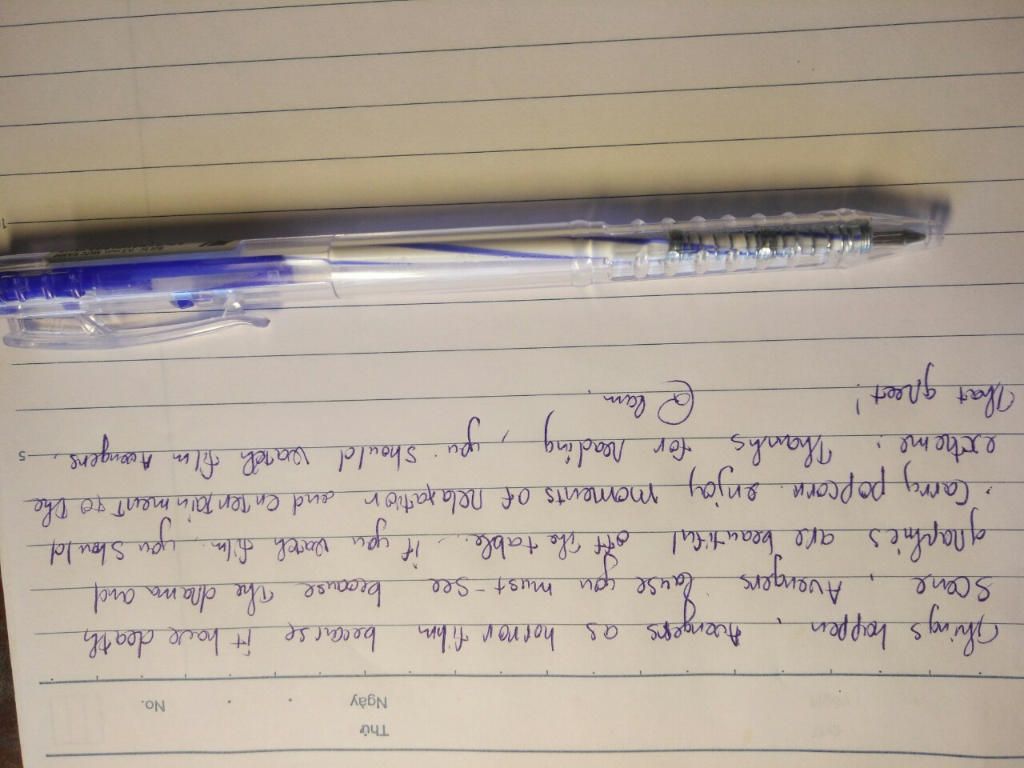 Thứ
Ngày No.
Things happen, Avengers as horror film because it have death
scene, Avengers lause you must-see because the drama and
graphics are beautiful off the table. if you watch film, you should
carry popcorn enjoy moments of relaxation and entertainment to the
extreme. Thanks for reading, you should watch film Avengers.
5
That great! @ Lam.